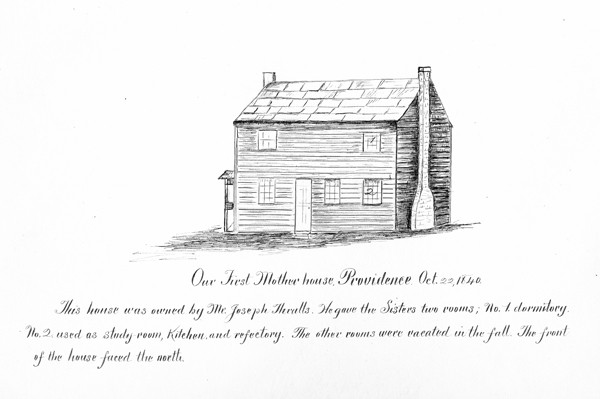 1
2
Our First Mother house, Providence. Oct. 22, 1840.
This house was owned by Mr. Joseph Thralls. He gave the Sisters two rooms; No. 1. dormitory.
No. 2. used as study room, Kitchen, and refectory. The other rooms were vacated in the fall. The front
of the house faced the north.